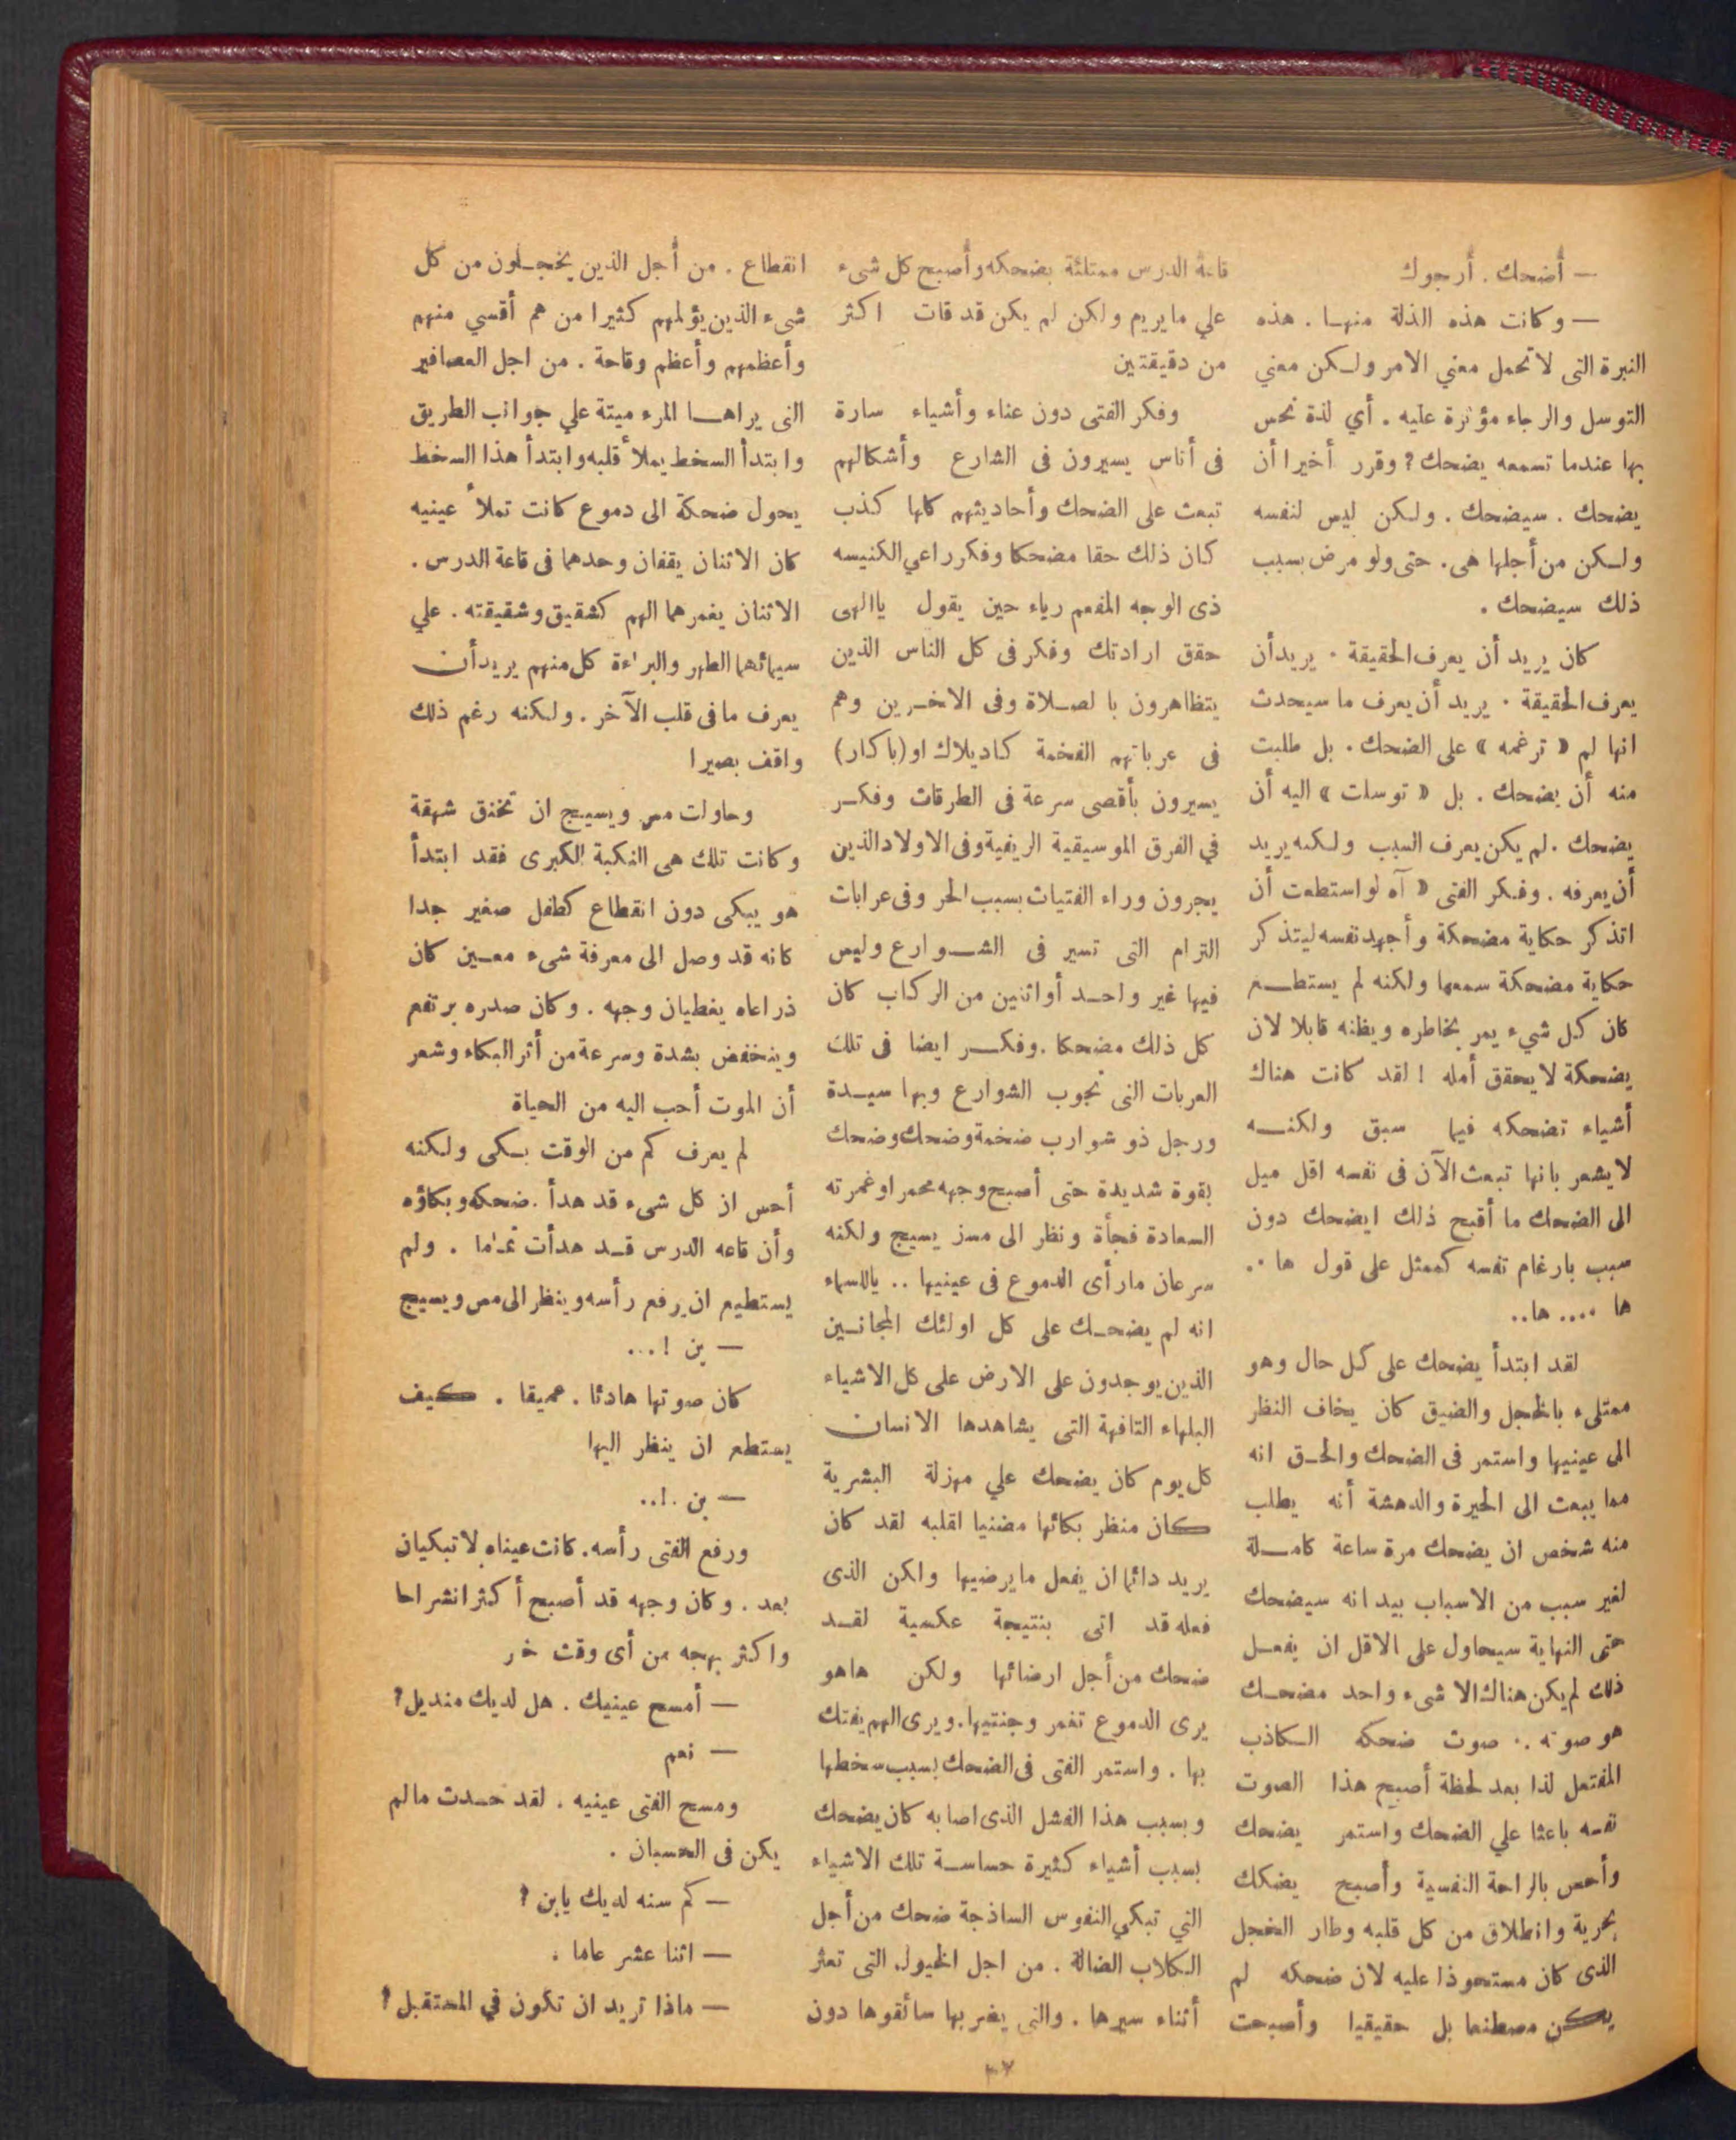 — أضحك . أرجوك
— وكانت هذه الذلة منها . هذه
النبرة التى لاتحمل معني الامر ولكن معني
التوسل والرجاء مؤثرة عليه . أي لذة تحس
بها عندما تسمعه يضحك ؟ وقرر أخيرا أن
يضحك . سيضحك . ولكن ليس لنفسه
ولكن من أجلها هى . حتى ولو مرض بسبب
ذلك سيضحك .
كان يريد أن يعرف الحقيقة . يريد أن
يعرف الحقيقة . يريد أن يعرف ما سيحدث
انها لم « ترغمه » على الضحك . بل طلبت
منه أن يضحك . بل « توسلت » اليه أن
يضحك . لم يكن يعرف السبب ولكنه يريد
أن يعرفه . وفكر الفتى « آه لو استطعت أن
اتذكر حكاية مضحكة وأجهد نفسه ليتذكر
حكاية مضحكة سمعها ولكنه لم يستطع
كان كل شيء يمر بخاطره ويظنه قابلا لان
يضحكة لايحقق أمله ! لقد كانت هناك
أشياء تضحكه فيما سبق ولكنه
لايشعر بانها تبعث الآن فى نفسه اقل ميل
الى الضحك ما أقبح ذلك ايضحك دون
سبب بارغام نفسه كممثل على قول ها ..
ها .... ها..
لقد ابتدأ يضحك على كل حال وهو
ممتلىء بالخجل والضيق كان يخاف النظر
الى عينيها واستمر فى الضحك والحق انه
مما يبعث الى الحيرة والدهشة أنه يطلب
منه شخص ان يضحك مرة ساعة كاملة
لغير سبب من الاسباب بيد انه سيضحك
حتى النهاية سيحاول على الاقل ان يفعل
ذلك لم يكن هناك الا شىء واحد مضحك
هو صوته .. صوت ضحكه الكاذب
المفتعل لذا بعد لحظة أصبح هذا الصوت
نفسه باعثا علي الضحك واستمر يضحك
وأحس بالراحة النفسية وأصبح يضكك
بحرية وانطلاق من كل قلبه وطار الخجل
الذى كان مستحوذا عليه لان ضحكه لم
يكن مصطنعا بل حقيقيا وأصبحت
قاعة الدرس ممتلئة بضحكه وأصبح كل شىء
علي مايريم ولكن لم يكن قد فات اكثر
من دقيقتين
وفكر الفتى دون عناء وأشياء سارة
فى أناس يسيرون فى الشارع وأشكالهم
تبعث على الضحك وأحاديثهم كلها كذب
كان ذلك حقا مضحكا وفكر راعي الكنيسه
ذى الوجه المفعم رياء حين يقول ياالهى
حقق ارادتك وفكر فى كل الناس الذين
يتظاهرون بالصلاة وفى الاخرين وهم
فى عرباتهم الفخمة كاديلاك او (باكار)
يسيرون بأقصى سرعة فى الطرقات وفكر
في الفرق الموسيقية الريفية وفى الاولاد الذين
يجرون وراء الفتيات بسبب الحر وفى عرابات
الترام التى تسير فى الشوارع وليس
فيها غير واحد أو اثنين من الركاب كان
كل ذلك مضحكا . وفكر ايضا فى تلك
العربات التى تجوب الشوارع وبها سيدة
ورجل ذو شوارب ضخمة وضحك وضحك
بقوة شديدة حتى أصبح وجهه محمرا وغمرته
السعادة فجأة ونظر الى مسز يسيج ولكنه
سرعان مارأى الدموع فى عينيها .. ياللسماء
انه لم يضحك على كل اولئك المجانين
الذين يوجدون على الارض على كل الاشياء
البلهاء التافهة التى يشاهدها الانسان
كل يوم كان يضحك علي مهزلة البشرية
كان منظر بكائها مضنيا لقلبه لقد كان
يريد دائما ان يفعل مايرضيها ولكن الذى
فعله قد اتى بنتيجة عكسية لقد
ضحك من أجل ارضائها ولكن هاهو
يرى الدموع تغمر وجنتيها . ويرى الهم يفتك
بها . واستمر الفتى فى الضحك بسبب سخطها
وبسبب هذا الفشل الذى اصابه كان يضحك
بسبب أشياء كثيرة حساسة تلك الاشياء
التي تبكي النفوس الساذجة ضحك من أجل
الكلاب الضالة . من اجل الخيول التى تعثر
أثناء سيرها . والتى يضربها سائقوها دون
انقطاع . من أجل الذين يخجلون من كل
شىء الذين يؤلمهم كثيرا من هم أقسي منهم
وأعظمهم وأعظم وقاحة . من اجل العصافير
التى يراها المرء ميتة علي جوانب الطريق
وابتدأ السخط يملأ قلبه وابتدأ هذا السخط
يحول ضحكة الى دموع كانت تملأ عينيه
كان الاثنان يقفان وحدهما فى قاعة الدرس .
الاثنان يغمرهما الهم كشقيق وشقيقته . علي
سيمائهما الطهر والبراءة كل منهم يريد أن
يعرف مافى قلب الآخر . ولكنه رغم ذلك
واقف بصيرا
وحاولت مس ويسيج ان تخنق شهقة
وكانت تلك هى النكبة الكبرى فقد ابتدأ
هو يبكى دون انقطاع كطفل صغير جدا
كانه قد وصل الى معرفة شىء معين كان
ذراعاه يغطيان وجهه . وكان صدره يرتفع
وينخفض بشدة وسرعة من أثر البكاء وشعر
أن الموت أحب اليه من الحياة
لم يعرف كم من الوقت بكى ولكنه
أحس ان كل شىء قد هدأ . ضحكه وبكاؤه
وأن قاعه الدرس قد هدأت تماما . ولم
يستطيع ان يرفع رأسه وينظر الى مس ويسيج
— بن ! ...
كان صوتها هادئا . عميقا . كيف
يستطع ان ينظر اليها
— بن .!..
ورفع الفتى رأسه . كانت عيناه لاتبكيان
بعد . وكان وجهه قد أصبح أكثر انشراحا
واكثر بهجه من أى وقت خر
— أمسح عينيك . هل لديك منديل ؟
— نعم
ومسح الفتى عينيه . لقد حدث مالم
يكن فى الحسبان .
— كم سنه لديك يابن ؟
— اثنا عشر عاما .
— ماذا تريد ان تكون في المستقبل ؟